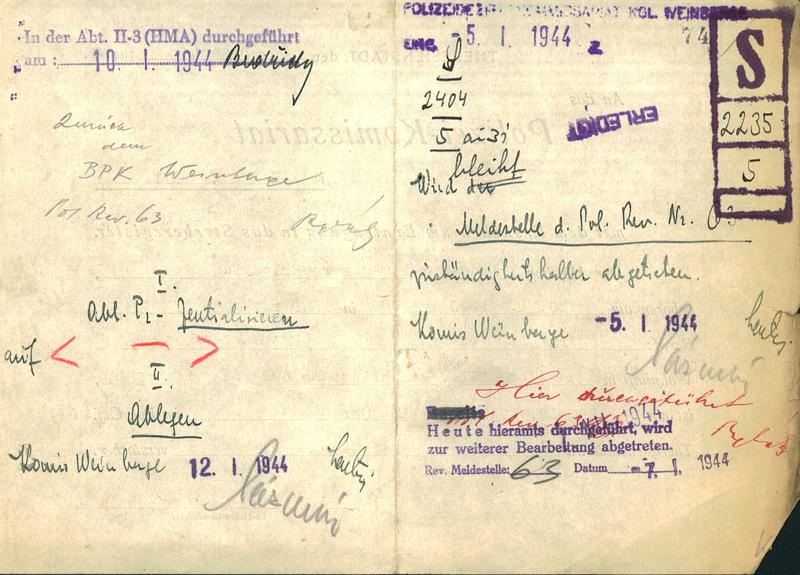 In der Abt. II-3 (HMA) durchgeführt
am: 10. I. 1944
Zurück
dem
BPK Weinberge
Pol. Rev. 63
I.
Abt. P2 - Zentralisieren
auf < — >
II.
Ablegen
Komis Weinberge 12. I. 1944
KOL. WEINBERGE
EING. -5. I. 1944
2
74
2404
5
ERLEDIGT
S
2235
5
bleibt
Wird der
Meldestelle d. Pol. Rev. Nr. 63
zuständigkeitshalber abgetreten.
Komis Weinberge -5. I. 1944
Hier durchgeführt
1944
Heute hieramts durchgeführt, wird
zur weiterer Bearbeitung abgetreten.
Rev. Meldestelle: 63 Datum -7. I. 1944